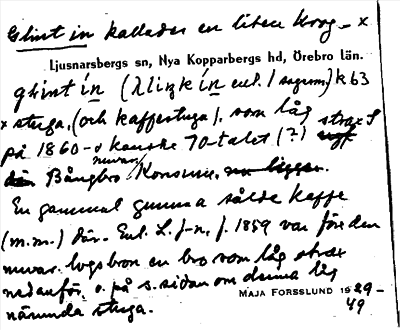 Glint in kallades en liten krog- x
Ljusnarsbergs sn, Nya Kopparbergs hd, Örebro län.
glint ín (enl. sagesm.) k 63
x stuga, (och kaffestuga), som låg strax S
på 1860- o kanske 70-talet (?)
nuvar.
Bångbro Konsum,
En gammal gumma sålde kaffe
(m.m.) där. Enl. L. J-n, f. 1859 var före den
nuvar. logsbron en bro som låg strax
nedanför o. på s. sidan om denna låg
nämnda stuga.
MAJA FORSSLUND 1939-
49